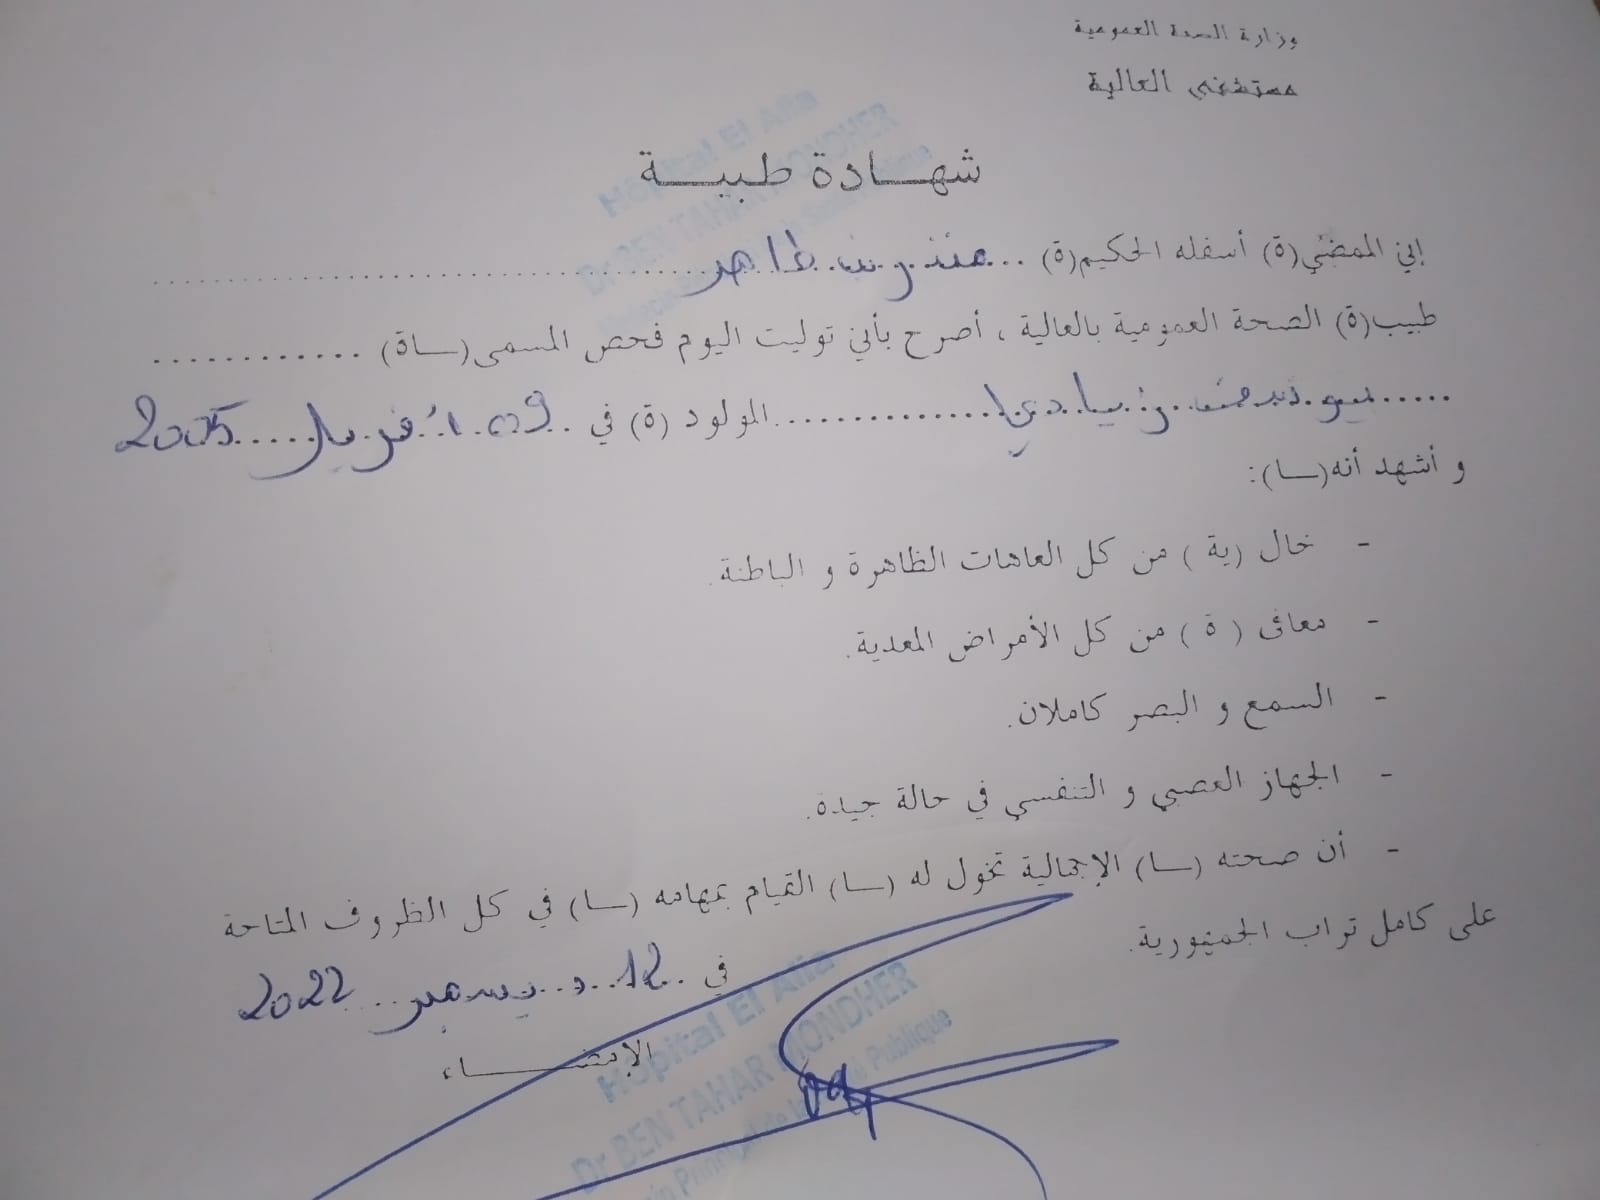 وزارة الصحة العمومية
مستشفى العالية
Hôpital El Alia
Dr BEN TAHAR MONDHER
شهادة طبية
إني الممضي(ة) أسفله الحكيم(ة) ... منذر بن طاهر ...
طبيب(ة) الصحة العمومية بالعالية ، أصرح بأني توليت اليوم فحص المسمى(ـاة) ............
..... زيادي ............ المولود (ة) في .. 09 أفريل .... 2005
و أشهد أنه(ـا):
- خال (ية ) من كل العاهات الظاهرة و الباطنة.
- معافى ( ة ) من كل الأمراض المعدية.
- السمع و البصر كاملان.
- الجهاز العصبي و التنفسي في حالة جيدة.
- أن صحته (ـا) الإجمالية تخول له (ـا) القيام بمهامه (ـا) في كل الظروف المتاحة
على كامل تراب الجمهورية.
في .. 12 ديسمبر ... 2022
الإمضاء
Hôpital El Alia
Dr BEN TAHAR MONDHER
Publique